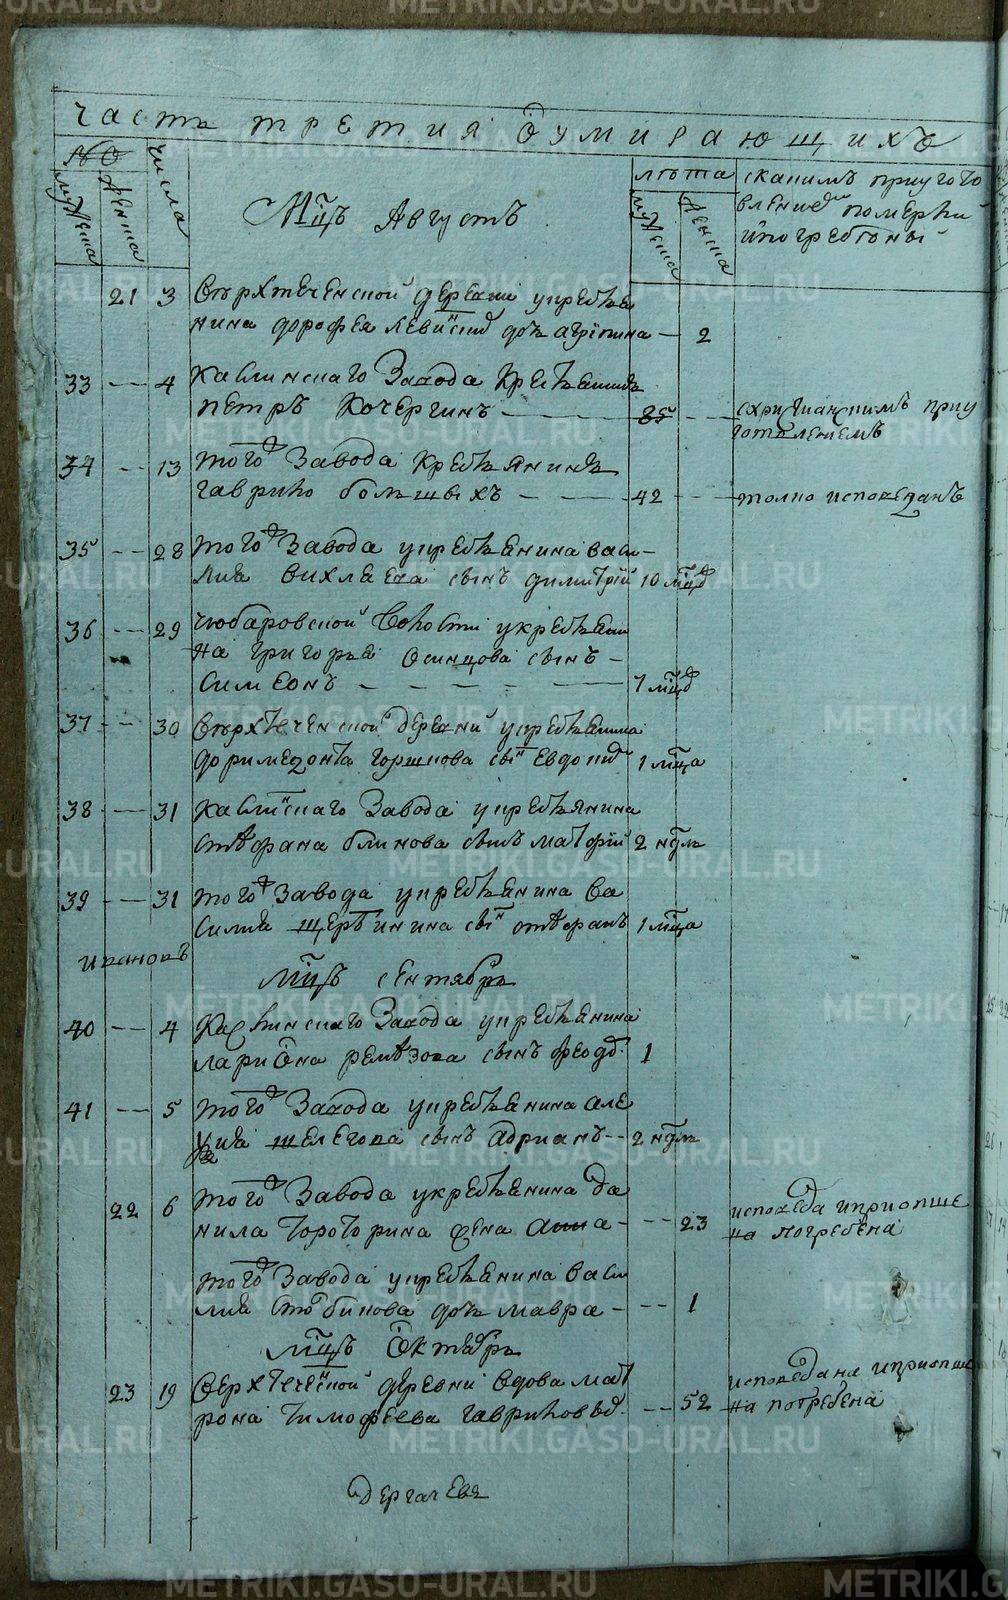 Часть третия о умирающихъ
№
числа
мужеска
женска
Мцъ Августъ
лѣта
мужеска
женска
скакимъ приугото
влениемъ померли
ипогребены
21 3 Верхтеченской деревни укрестьяни
нина дорофея дочь агрипина — 2
33 — 4 Каслинскаго Завода Крестьянинъ
петръ Кочергинъ — 85 — схристианскимъ приу
готовлениемъ
34 — 13 того Завода Крестьянинъ
гаврило большыхъ — 42 — толко исповеданъ
35 — 28 того Завода укрестьянина васи
лия вихляева сынъ димитрий 10 мцъ
36 — 29 чюбаровской волости укрестьяни
на григорья осинцова сынъ —
симеонъ — 7 мцъ
37 — 30 Верхтеченской деревни укрестьянина
доримедонта горшкова сынъ Евдоким 1 мца
38 — 31 Каслинскаго Завода укрестьянина
стефана блинова сынъ матфий 2 ндль
39 — 31 того Завода укрестьянина ва
силия щербинина сынъ стефанъ 1 мца
ивановъ
Мцъ сентябрь
40 — 4 Каслинскаго Завода укрестьянина
лариона ремезова сынъ феод 1
41 — 5 того Завода укрестьянина але
ѯия шелегова сынъ адрианъ — 2 ндль
22 6 того Завода укрестьянина да
нила жена анна — 23 исповеда иприобще
на погребена
того Завода укрестьянина васи
лия дочь мавра — 1
Мцъ Октябрь
23 19 Верхтеченской деревни вдова мат
рона тимофеева гаврилова — 52 исповедана иприобще
на погребена
дергалева
METRIKI.GASO-URAL.RU